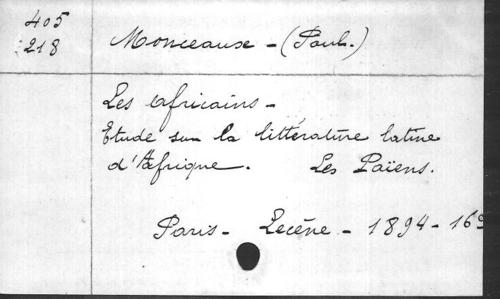 405
218
Monceause - (Paul.)
Les Africains -
Etude sur la littérature latine
d'Afrique. Les Païens.
Paris - Lecène - 1894 - 16º